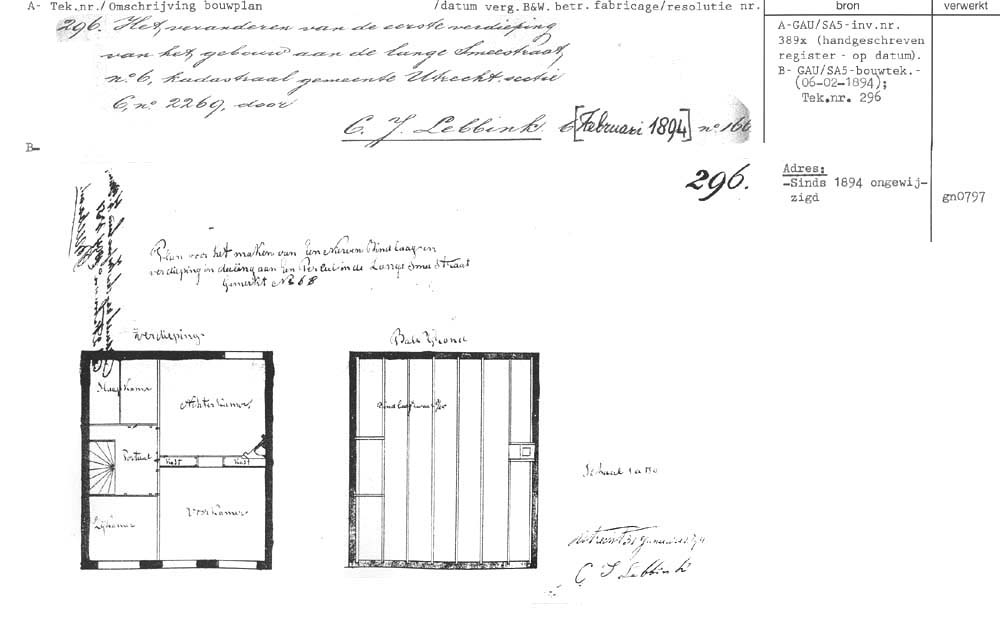 A- Tek.nr./Omschrijving bouwplan /datum verg.B&W.betr.fabricage/resolutie nr.
bron
verwerkt
296. Het veranderen van de eerste verdieping
van het gebouw aan de lange Smeestraat,
no 6, kadastraal gemeente Utrecht sectie
C, no 2269, door
C. J. Lebbink 6 [Februari 1894] no 166
A-GAU/SA5-inv.nr.
389x (handgeschreven
register - op datum).
B- GAU/SA5-bouwtek.-
(06-02-1894);
Tek.nr. 296
B-
296.
Adres:
-Sinds 1894 ongewij-
zigd
gn0797
Plan voor het maken van Een Nieuwen Bind laag en
verdieping in deeling aan Een Perceel in de Lange Smee Straat
Gemerkt No 6
Verdieping
Balk Grond
Slaap Kamer
Achter Kamer
Portaal
Kast
Kast
Voor Kamer
Zij Kamer
Schaal 1 a
Utrecht 31 Januari
C J Lebbink